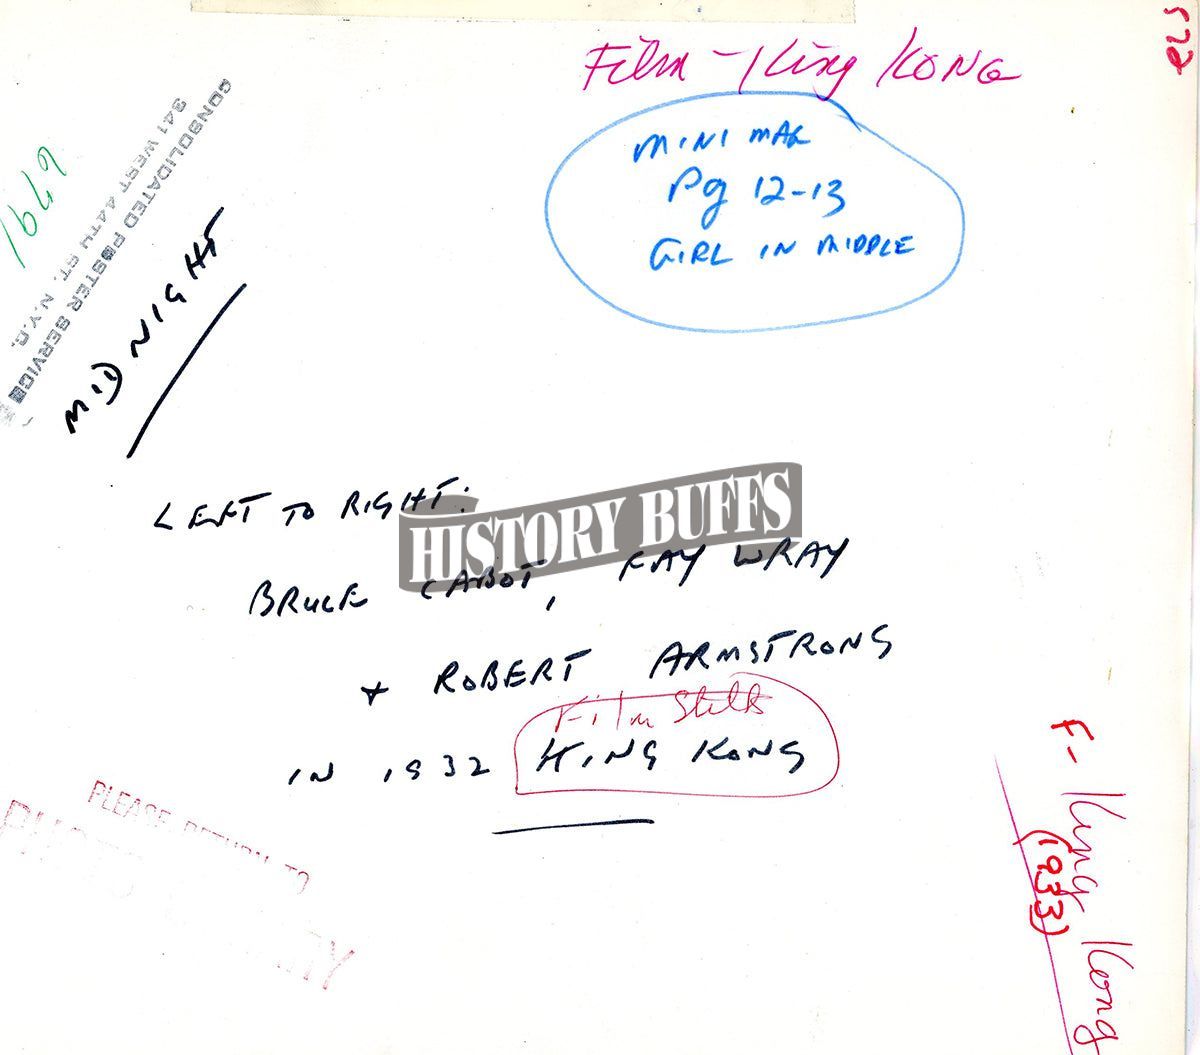 Film - King KONG
572
MINI MAG
Pg 12-13
GIRL IN MIDDLE
CONSOLIDATED POSTER SERVICE
341 WEST 44TH ST. N.Y.C.
1649
MIDNIGHT
LEFT TO RIGHT:
HISTORY BUFFS
BRUCE CABOT, FAY WRAY
+ ROBERT ARMSTRONG
Film Stills
IN 1932 KING KONG
PLEASE RETURN TO
F- King Kong
(1933)